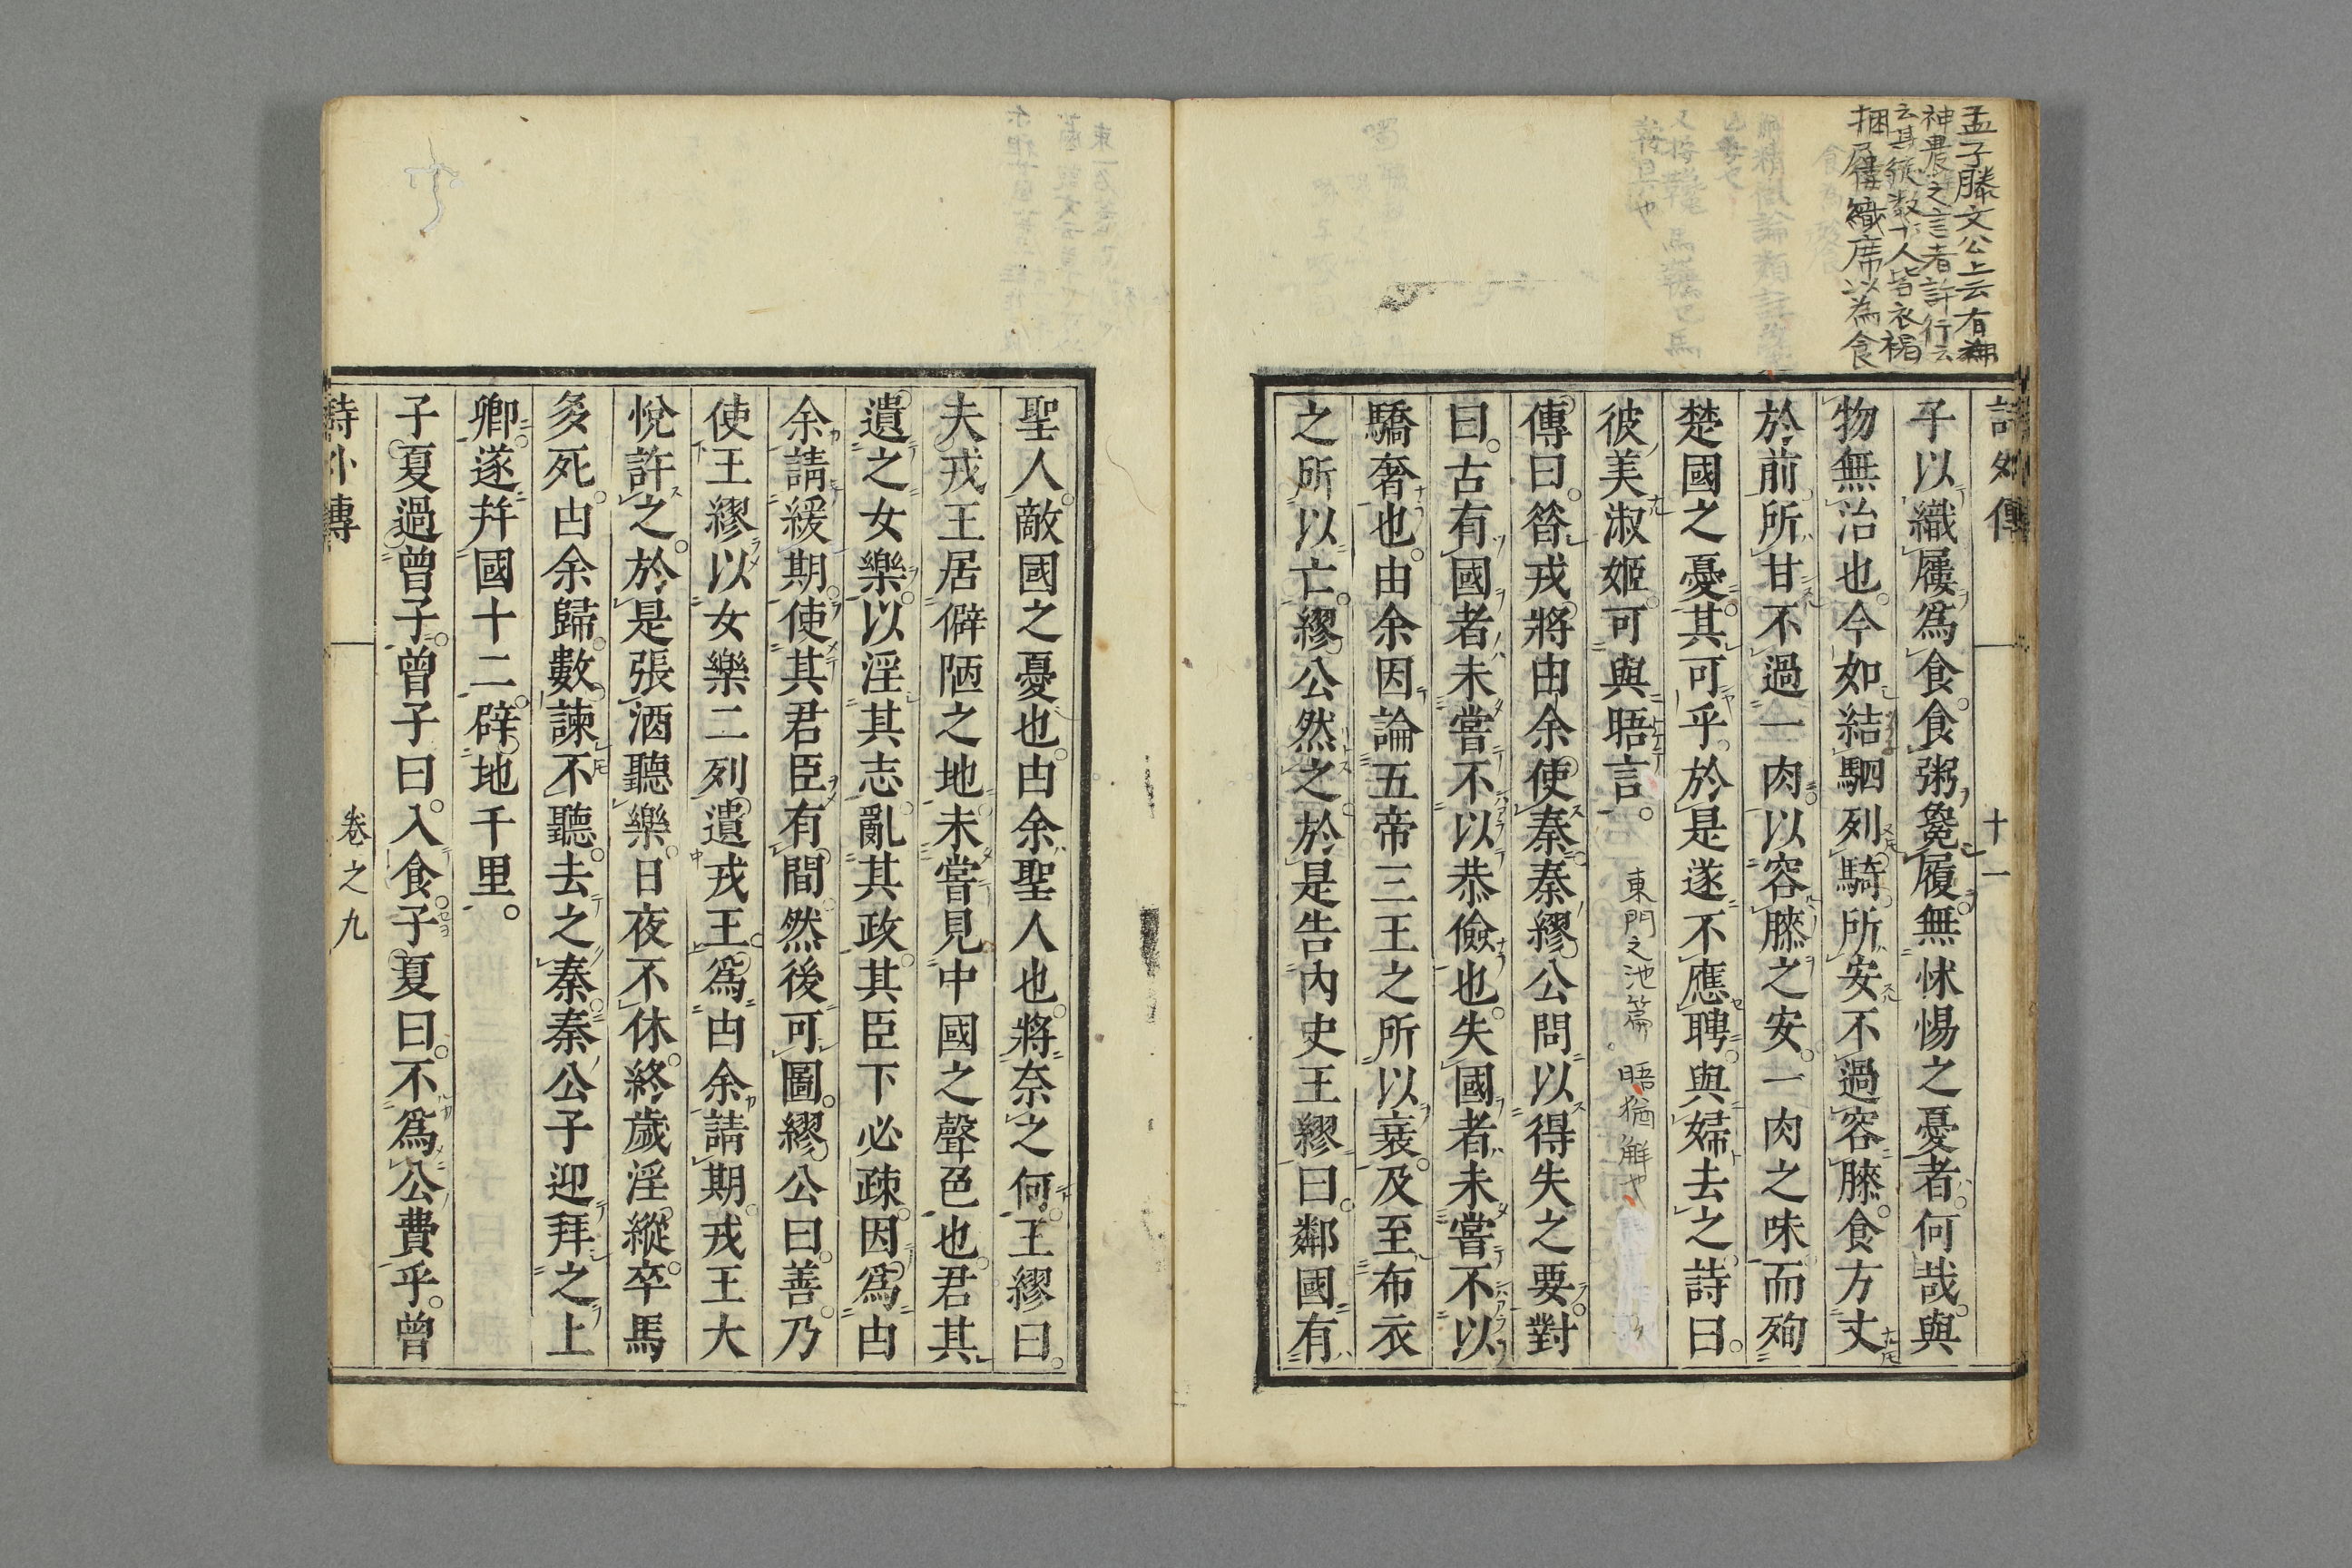 孟子滕文公上云有為
神農之言者許行云
云其徒数十人皆衣褐
捆屨織席以為食
詩外傳 十一
子以織屨爲食食粥毚履無怵惕之憂者何哉與
物無治也今如結駟列騎所安不過容膝食方丈
於前所甘不過一肉以容膝之安一肉之味而殉
楚國之憂其可乎於是遂不應聘與婦去之詩曰
彼美淑姬可與晤言 東門之池篇 晤猶解也
傳曰昝戎將由余使秦秦繆公問以得失之要對
曰古有國者未嘗不以恭儉也失國者未嘗不以
驕奢也由余因論五帝三王之所以衰及至布衣
之所以亡繆公然之於是告内史王繆曰鄰國有
聖人敵國之憂也由余聖人也將奈之何王繆曰
夫戎王居僻陋之地未嘗見中國之聲色也君其
遺之女樂以淫其志亂其政其臣下必疎因爲由
余請緩期使其君臣有間然後可圖繆公曰善乃
使王繆以女樂二列遺戎王爲由余請期戎王大
悅許之於是張酒聽樂日夜不休終歲淫縱卒馬
多死由余歸數諫不聽去之秦秦公子迎拜之上
卿遂幷國十二辟地千里
子夏過曾子曾子曰入食子夏曰不爲公費乎曾
詩外傳 卷之九